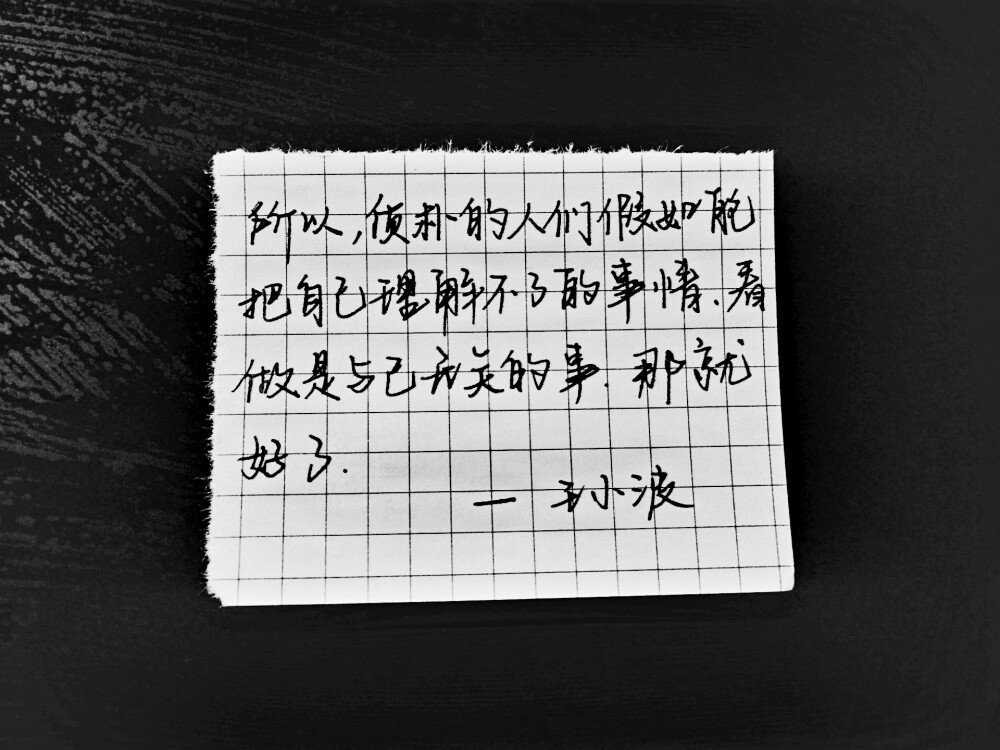 所以,偵朴的人们假如能
把自己理解不了的事情.看
做是与己无关的事.那就
好了.
— 王小波